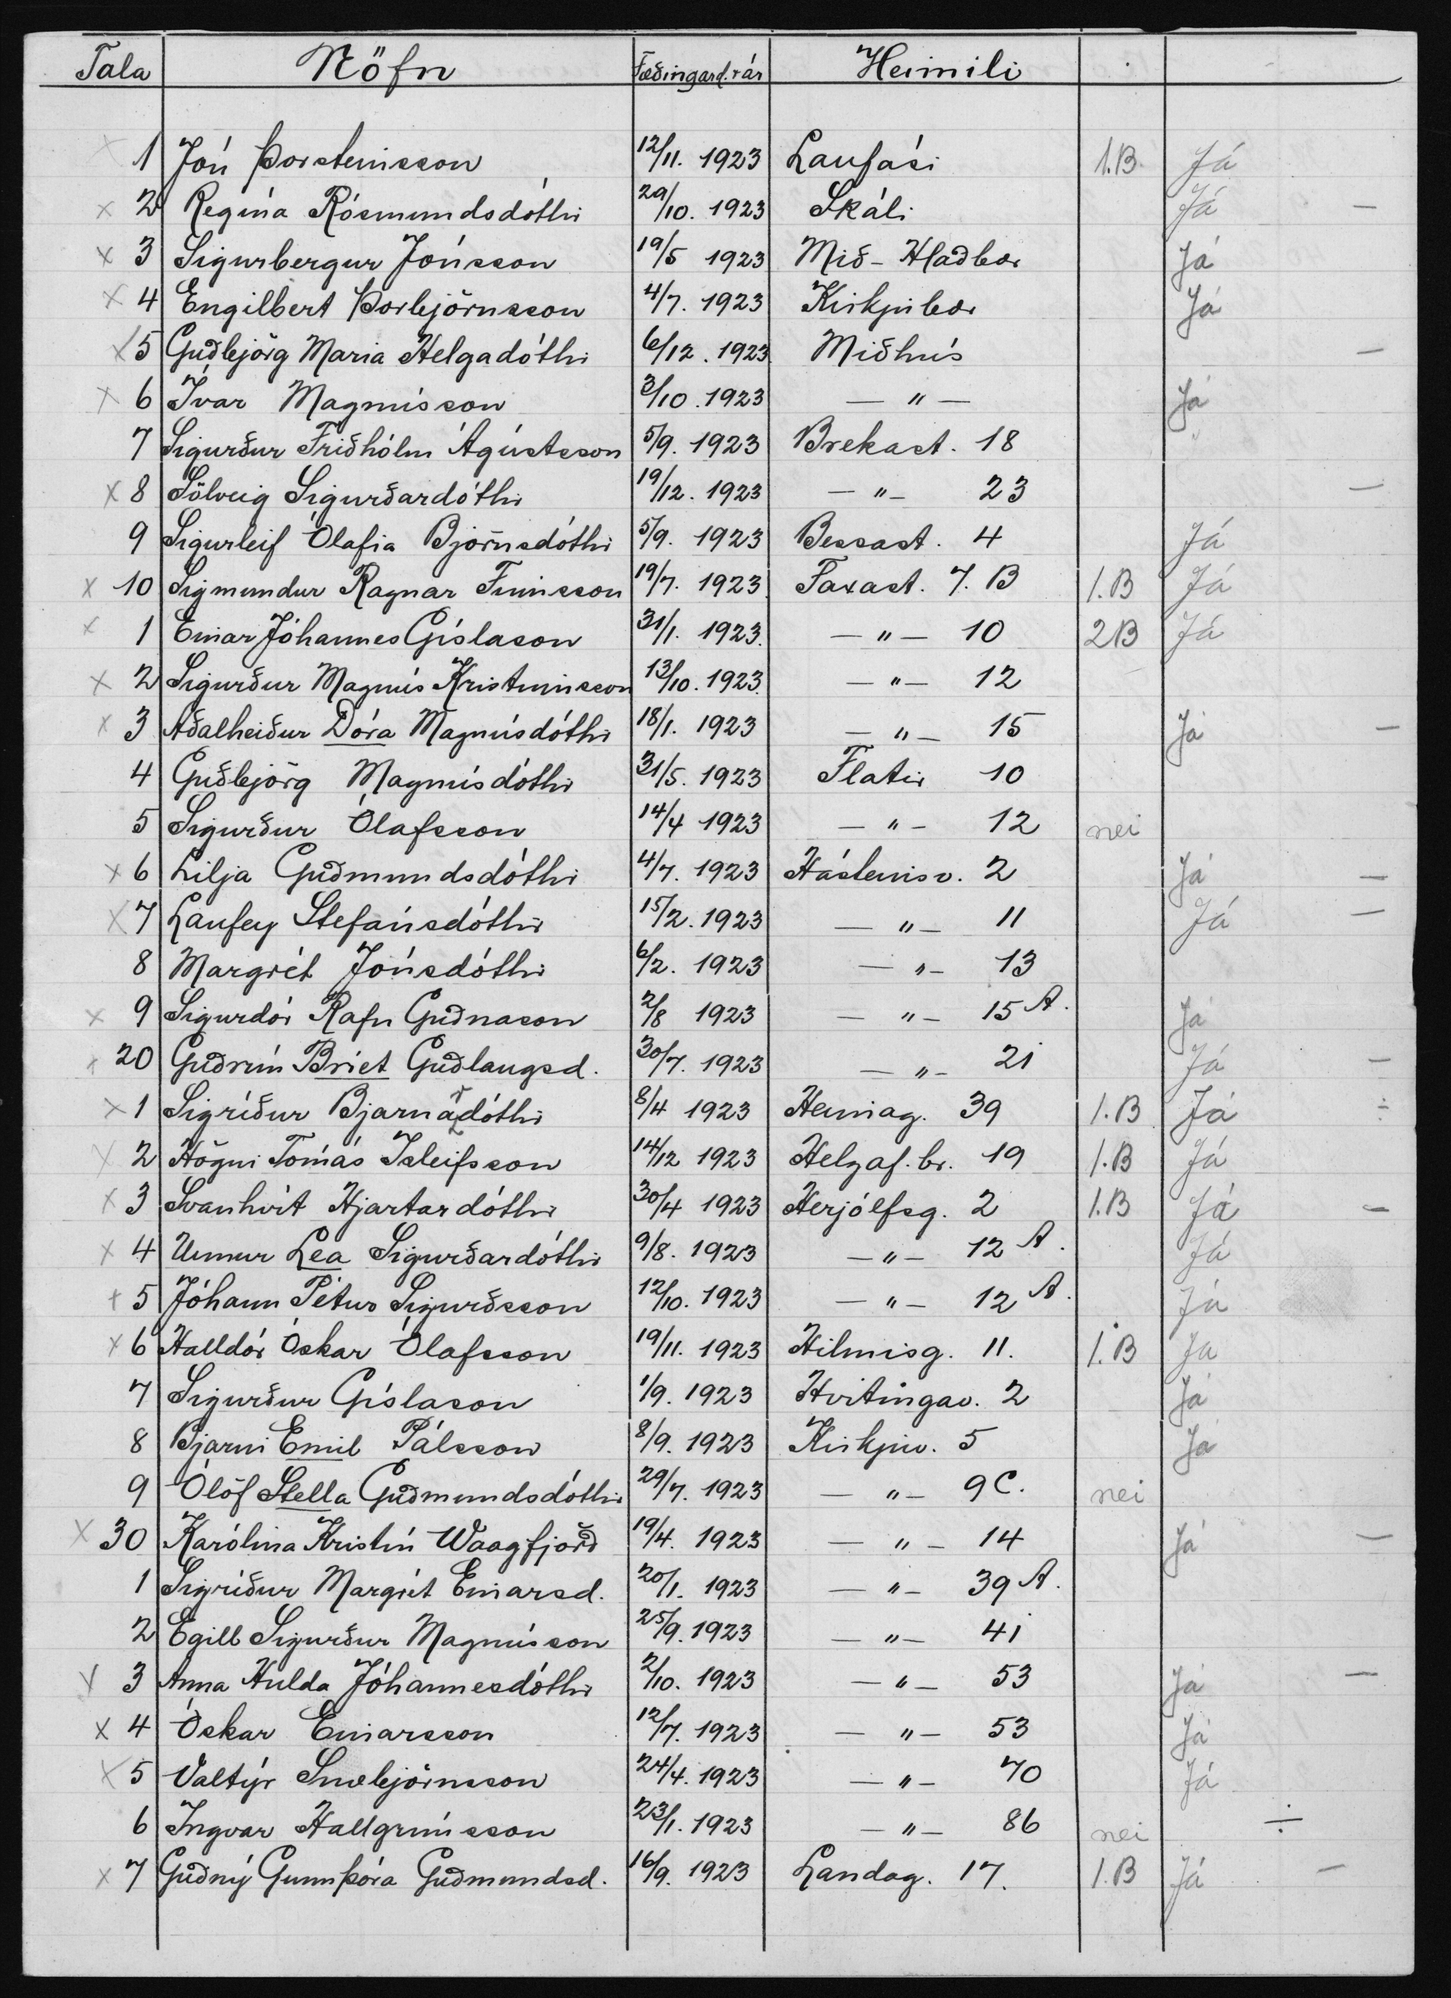 Tala Nöfn Fæðingard. + ár Heimili
x 1 Jón Þorsteinsson 12/11. 1923 Laufási 1.B. Já
x 2 Regína Rósmundsdóttir 29/10. 1923 Skáli Já —
x 3 Sigurbergur Jónsson 19/5 1923 Mið-Hlaðbær Já
x 4 Engilbert Þorbjörnsson 4/7. 1923 Kirkjubær Já
x 5 Guðbjörg Maria Helgadóttir 6/12. 1923 Miðhús —
x 6 Ívar Magnússon 3/10. 1923 — " — Já
7 Sigurður Friðhólm Ágústsson 5/9. 1923 Brekast. 18
x 8 Sölveig Sigurðardóttir 19/12. 1923 — " — 23 —
9 Sigurleif Ólafia Björnsdóttir 5/9. 1923 Bessast. 4 Já
x 10 Sigmundur Ragnar Finnsson 19/7. 1923 Faxast. 7. B 1.B Já
x 1 Einar Jóhannes Gíslason 31/1. 1923. — " — 10 2B Já
x 2 Sigurður Magnús Kristinnsson 13/10. 1923. — " — 12
x 3 Aðalheiður Dóra Magnúsdóttir 18/1. 1923 — " — 15 Já —
4 Guðbjörg Magnúsdóttir 31/5. 1923 Flatir 10
5 Sigurður Ólafsson 14/4 1923 — " — 12 nei
x 6 Lilja Guðmundsdóttir 4/7. 1923 Hásteinsv. 2 Já —
x 7 Laufey Stefánsdóttir 15/2. 1923 — " — 11 Já —
8 Margrét Jónsdóttir 6/2. 1923 — " — 13
x 9 Sigurdór Rafn Guðnason 2/8 1923 — " — 15 A. Já
x 20 Guðrún Briet Guðlaugsd. 30/7. 1923 — " — 21 Já —
x 1 Sigríður Bjarnadóttir 8/4 1923 Heimag. 39 1.B Já ÷
x 2 Högni Tómás Ísleifsson 14/12 1923 Helgaf.br. 19 1.B Já
x 3 Svanhvít Hjartardóttir 30/4 1923 Herjólfsg. 2 1.B Já —
x 4 Unnur Lea Sigurðardóttir 9/8. 1923 — " — 12 A. Já
+ 5 Jóhann Pétur Sigurðsson 12/10. 1923 — " — 12 A. Já
x 6 Halldór Óskar Ólafsson 19/11. 1923 Hilmisg. 11. 1.B Já
7 Sigurður Gíslason 1/9. 1923 Hvítingav. 2 Já
8 Bjarni Emil Pálsson 8/9. 1923 Kirkjuv. 5 Já
9 Ólöf Stella Guðmundsdóttir 29/7. 1923 — " — 9C. nei
x 30 Karólína Kristín Waagfjörð 19/4. 1923 — " — 14 Já —
1 Sigríður Margrét Einarsd. 20/1. 1923 — " — 39 A.
2 Egill Sigurður Magnússon 25/9. 1923 — " — 41
x 3 Anna Hulda Jóhannesdóttir 2/10. 1923 — " — 53 Já —
x 4 Óskar Einarsson 12/7. 1923 — " — 53 Já
x 5 Valtýr Snæbjörnsson 24/4. 1923 — " — 70 Já
6 Ingvar Hallgrímsson 23/1. 1923 — " — 86 nei ÷
x 7 Guðný Gunnþóra Guðmundsd. 16/9. 1923 Landag. 17. 1.B Já —